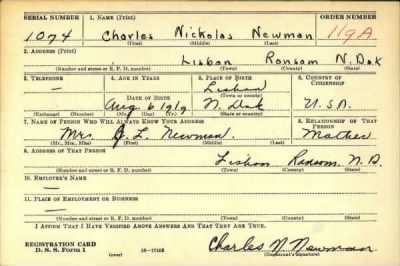 SERIAL NUMBER 1. NAME (Print) ORDER NUMBER
1074 Charles Nickolas Newman 119A
(First) (Middle) (Last)
2. ADDRESS (Print)
Lisbon Ransom N. Dak
(Number and street or R. F. D. number) (Town) (County) (State)
3. TELEPHONE 4. AGE IN YEARS 5. PLACE OF BIRTH 6. COUNTRY OF CITIZENSHIP
— Lisbon
DATE OF BIRTH (Town or county)
Aug 6 1919 N. Dak U.S.A.
(Exchange) (Number) (Mo.) (Day) (Yr.) (State or country)
7. NAME OF PERSON WHO WILL ALWAYS KNOW YOUR ADDRESS 8. RELATIONSHIP OF THAT PERSON
Mrs L. Newman Mother
(Mr., Mrs., Miss) (First) (Middle) (Last)
9. ADDRESS OF THAT PERSON
Lisbon Ransom. N. D.
(Number and street or R. F. D. number) (Town) (County) (State)
10. EMPLOYER'S NAME
—
11. PLACE OF EMPLOYMENT OR BUSINESS
—
(Number and street or R. F. D. number) (Town) (County) (State)
I AFFIRM THAT I HAVE VERIFIED ABOVE ANSWERS AND THAT THEY ARE TRUE.
REGISTRATION CARD
D. S. S. Form 1 (over) Charles N. Newman
(Registrant's signature)